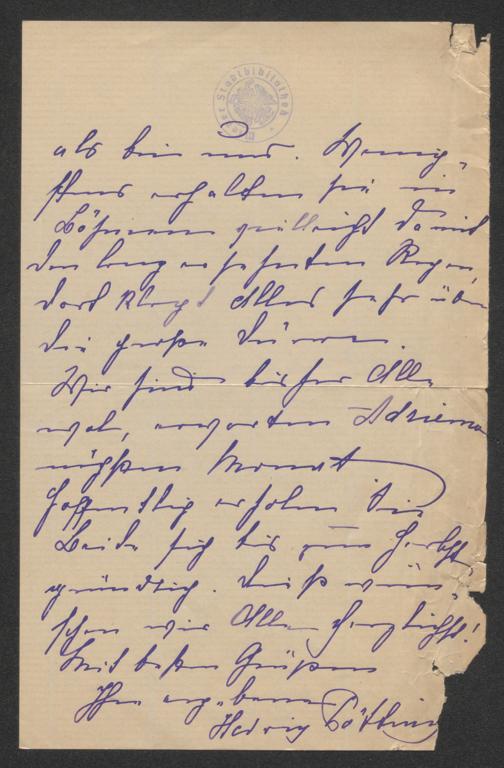 Wiener Stadtbibliothek
als bei uns. Wenig-
stens erhalten sie in
Böhmen vielleicht damit
den lang ersehnten Regen,
dort klagt Alles sehr über
die große Dürre.
Wir sind bisher Alle
wol, erwarten Adrienne
nächsten Monat
hoffentlich erholen Sie
Beide sich bis zum Herbst
gründlich. Dieß wün-
schen wir Alle herzlichst!
Mit besten Grüßen
Ihre ergebene
Hedwig Pötting